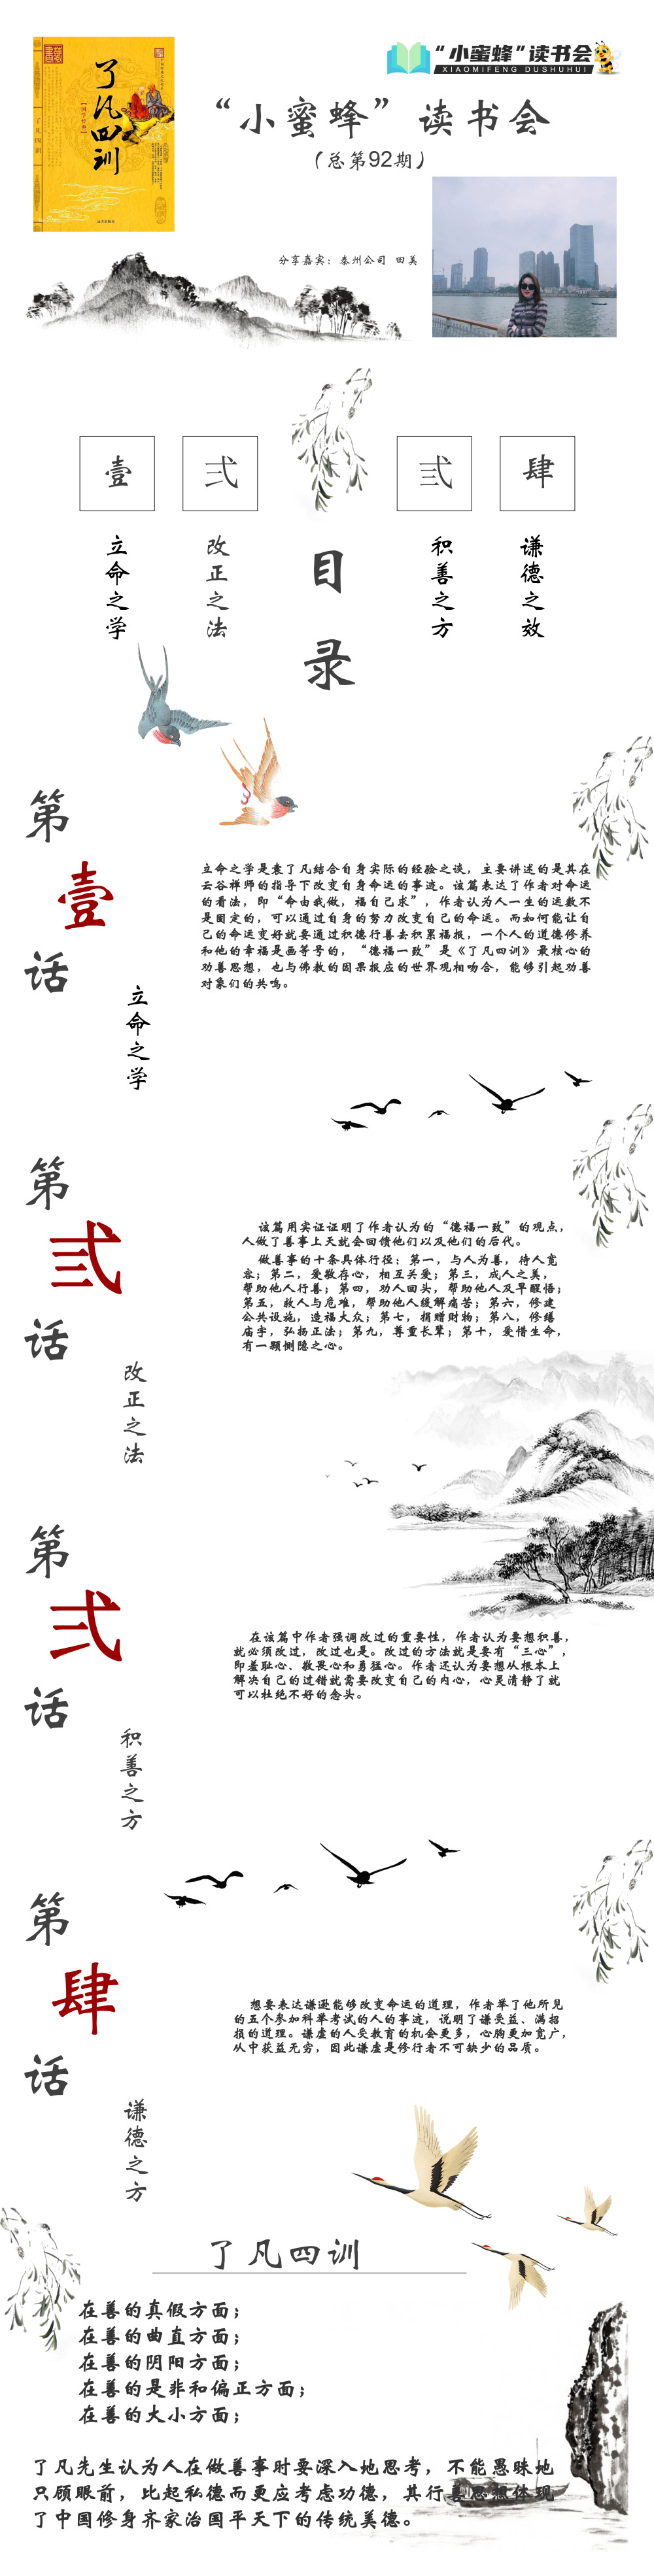 了凡四训
【国学经典】
了凡四训
“小蜜蜂”读书会
XIAOMIFENG DUSHUHUI
“小蜜蜂”读书会
（总第92期）
分享嘉宾：泰州公司 田美
壹
弍
弎
肆
立命之学
改正之法
目录
积善之方
谦德之效
第壹话
立命之学
立命之学是袁了凡结合自身实际的经验之谈，主要讲述的是其在
云谷禅师的指导下改变自身命运的事迹。该篇表达了作者对命运
的看法，即“命由我做，福自己求”，作者认为人一生的运数不
是固定的，可以通过自身的努力改变自己的命运。而如何能让自
己的命运变好就要通过积德行善去积累福报，一个人的道德修养
和他的幸福是画等号的，“德福一致”是《了凡四训》最核心的
劝善思想，也与佛教的因果报应的世界观相吻合，能够引起劝善
对象们的共鸣。
第弎话
改正之法
该篇用实证证明了作者认为的“德福一致”的观点，
人做了善事上天就会回馈他们以及他们的后代。
做善事的十条具体行径：第一，与人为善，待人宽
容；第二，爱敬存心，相互关爱；第三，成人之美，
帮助他人行善；第四，劝人回头，帮助他人及早醒悟；
第五，救人与危难，帮助他人缓解痛苦；第六，修建
公共设施，造福大众；第七，捐赠财物；第八，修缮
庙宇，弘扬正法；第九，尊重长辈；第十，爱惜生命，
有一颗恻隐之心。
第弍话
积善之方
在该篇中作者强调改过的重要性，作者认为要想积善，
就必须改过，改过也是。改过的方法就是要有“三心”，
即羞耻心、敬畏心和勇猛心。作者还认为要想从根本上
解决自己的过错就需要改变自己的内心，心灵清静了就
可以杜绝不好的念头。
第肆话
谦德之方
想要表达谦逊能够改变命运的道理，作者举了他所见
的五个参加科举考试的人的事迹，说明了谦受益、满招
损的道理。谦虚的人受教育的机会更多，心胸更加宽广，
从中获益无穷，因此谦虚是修行者不可缺少的品质。
了凡四训
在善的真假方面；
在善的曲直方面；
在善的阴阳方面；
在善的是非和偏正方面；
在善的大小方面；
了凡先生认为人在做善事时要深入地思考，不能愚昧地
只顾眼前，比起私德而更应考虑功德，其行善思想体现
了中国修身齐家治国平天下的传统美德。